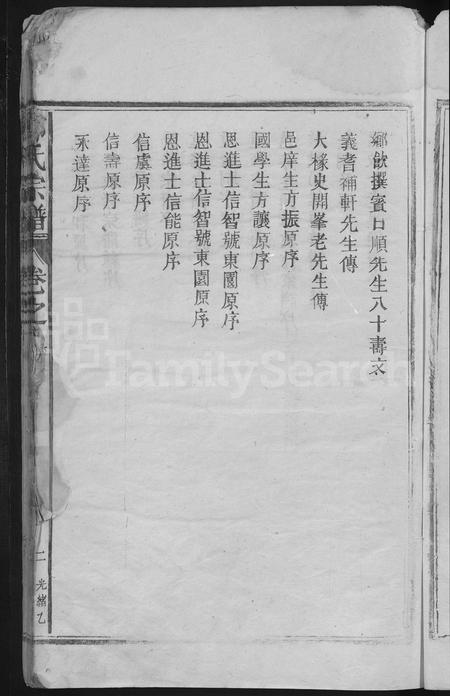 鄉飲撰賓口順先生八十壽文
義耆補軒先生傳
大椽史開峯老先生傳
邑庠生方振原序
國學生方讓原序
思進士信智號東園原序
恩進士信智號東園原序
恩進士信能原序
信虞原序
信壽原序
永達原序
氏宗譜
卷之
二
光緒乙
FamilySearch